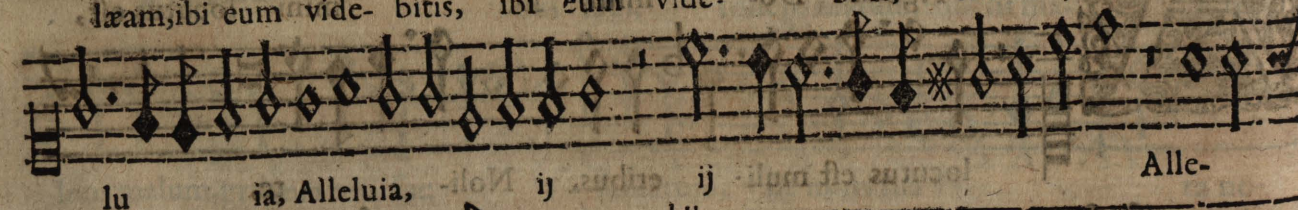 læam, ibi eum vide- bitis, ibi eum vide-
lu ia, Alleluia, ij ij Alle-